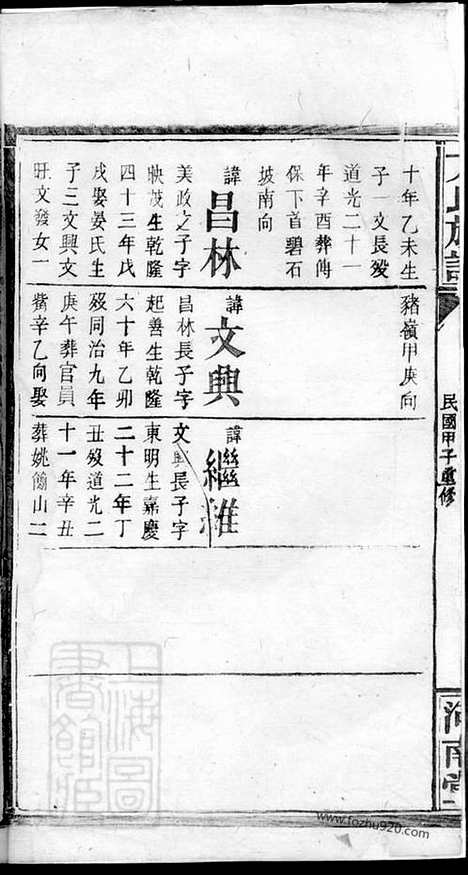 氏族譜
民國甲子重修
河南堂
十年乙未生
子一文長殁
道光二十一
年辛酉葬傳
保下首碧石
坡南向
諱昌林
美政之子字
映茂生乾隆
四十三年戊
戌娶晏氏生
子三文興文
旺文發女一
豬嶺甲庚向
諱文興
昌林長子字
起善生乾隆
六十年乙卯
殁同治九年
庚午葬官員
觜辛乙向娶
諱繼維
文興長子字
東明生嘉慶
二十二年丁
丑殁道光二
十一年辛丑
葬姚山二
上海圖
書館藏
www.fozhu920.com